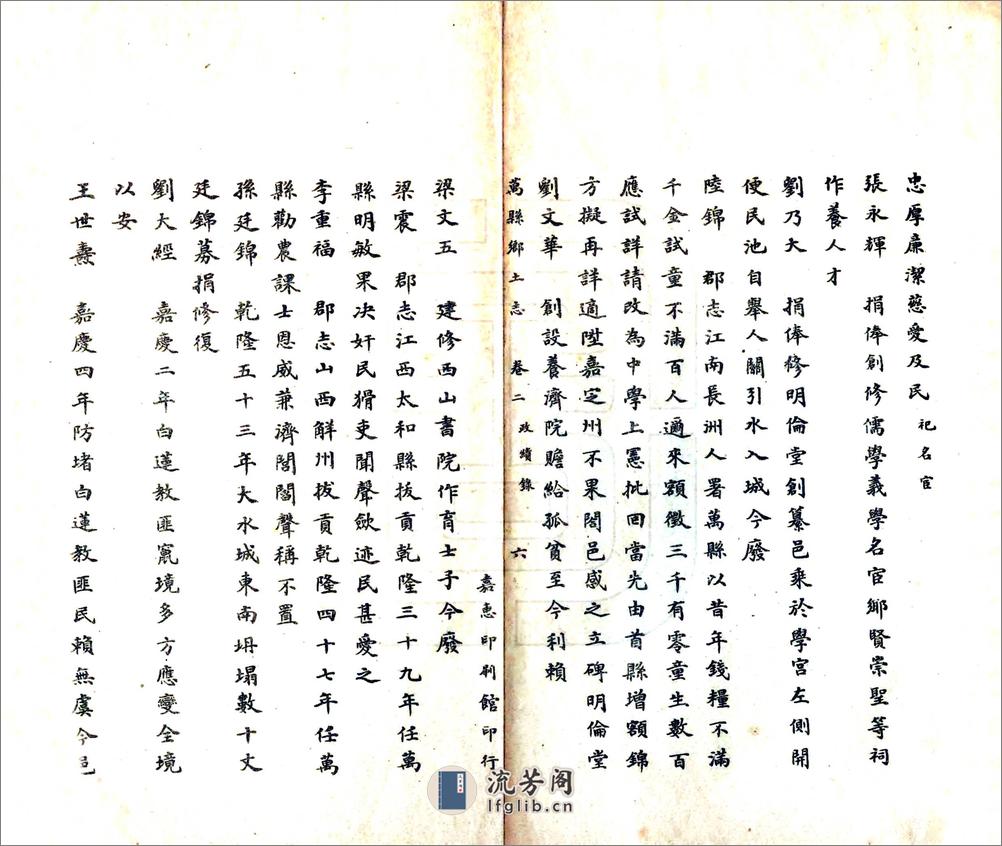 忠厚廉潔慈愛及民祀名宦
張永輝　捐俸創修儒學義學名宦鄉賢崇聖等祠
作養人才
劉乃大　捐俸修明倫堂創纂邑乘於學宮左側開
便民池自舉人關引水入城今廢
陸錦　郡志江南長洲人署萬縣以昔年錢糧不滿
千金試童不滿百人邇來額徵三千有零童生數百
應試詳請改為中學上憲批回當先由首縣增額錦
方擬再詳適陞嘉定州不果闔邑感之立碑明倫堂
劉文華　創設養濟院贍給孤貧至今利賴
萬縣鄉土志　卷二　政績錄　六
嘉惠印刷館印行
梁文五　建修西山書院作育士子今廢
梁震　郡志江西太和縣拔貢乾隆三十九年任萬
縣明敏果决奸民猾吏聞聲歛迹民甚愛之
李重福　郡志山西解州拔貢乾隆四十七年任萬
縣勸農課士恩威兼濟閭閻聲稱不置
孫廷錦　乾隆五十三年大水城東南坍塌數十丈
廷錦募捐修復
劉大經　嘉慶二年白蓮教匪竄境多方應變全境
以安
王世燾　嘉慶四年防堵白蓮教匪民賴無虞今邑
流芳阁
lfglib.cn